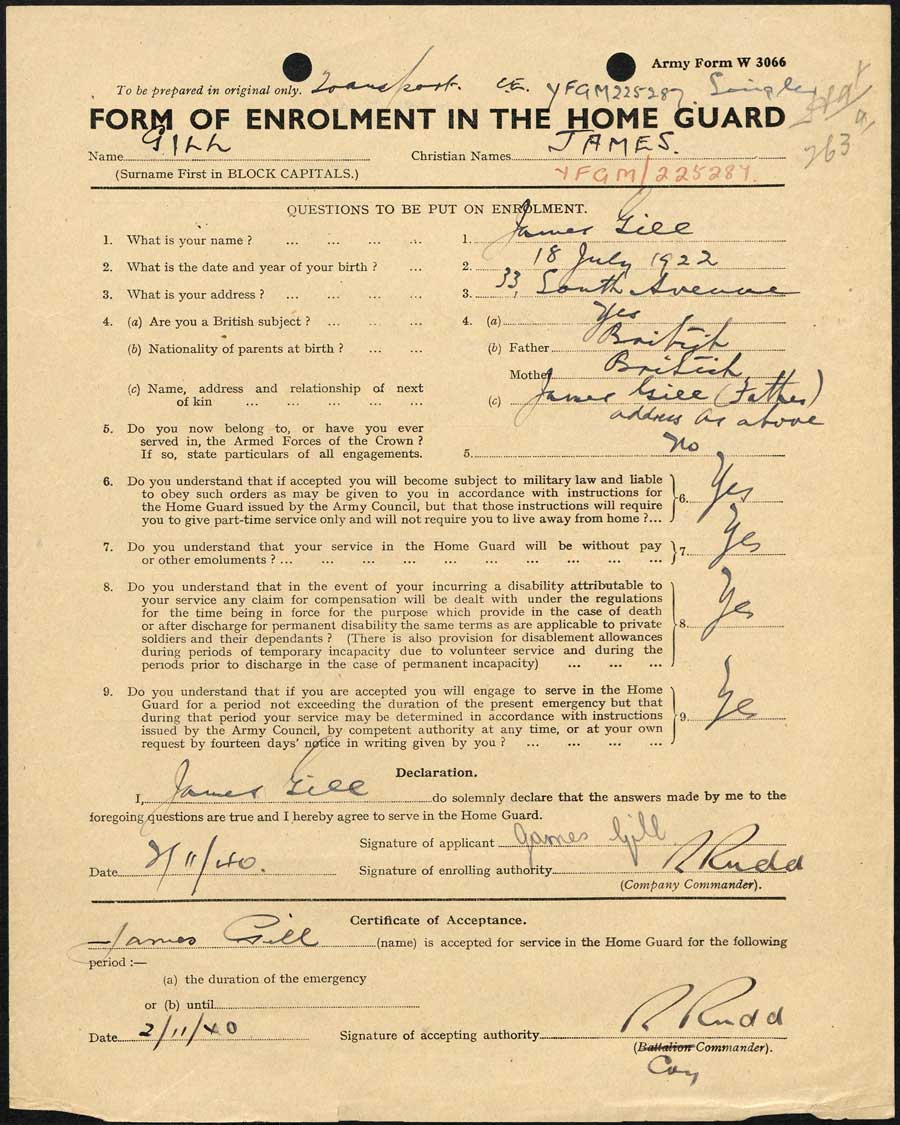 Army Form W 3066
To be prepared in original only. Transport. CE. YFGM225287.
FORM OF ENROLMENT IN THE HOME GUARD
263
Name GILL Christian Names JAMES.
(Surname First in BLOCK CAPITALS.) YFGM/225287.
QUESTIONS TO BE PUT ON ENROLMENT.
1. What is your name ? ... ... ... ... 1. James Gill
2. What is the date and year of your birth ? ... 2. 18 July 1922
3. What is your address ? ... ... ... ... 3. 33, South Avenue
4. (a) Are you a British subject ? ... ... ... 4. (a) Yes
(b) Nationality of parents at birth ? ... ... (b) Father British
Mother British
(c) Name, address and relationship of next
of kin ... ... ... ... ... (c) James Gill (Father)
address as above
5. Do you now belong to, or have you ever
served in, the Armed Forces of the Crown ?
If so, state particulars of all engagements. 5. No
6. Do you understand that if accepted you will become subject to military law and liable
to obey such orders as may be given to you in accordance with instructions for
the Home Guard issued by the Army Council, but that those instructions will require
you to give part-time service only and will not require you to live away from home ?...
6. Yes
7. Do you understand that your service in the Home Guard will be without pay
or other emoluments ? ... ... ... ... ... ... ... ... ...
7. Yes
8. Do you understand that in the event of your incurring a disability attributable to
your service any claim for compensation will be dealt with under the regulations
for the time being in force for the purpose which provide in the case of death
or after discharge for permanent disability the same terms as are applicable to private
soldiers and their dependants ? (There is also provision for disablement allowances
during periods of temporary incapacity due to volunteer service and during the
periods prior to discharge in the case of permanent incapacity) ... ... ...
8. Yes
9. Do you understand that if you are accepted you will engage to serve in the Home
Guard for a period not exceeding the duration of the present emergency but that
during that period your service may be determined in accordance with instructions
issued by the Army Council, by competent authority at any time, or at your own
request by fourteen days' notice in writing given by you ? ... ... ... ...
9. Yes
Declaration.
I, James Gill do solemnly declare that the answers made by me to the
foregoing questions are true and I hereby agree to serve in the Home Guard.
Signature of applicant James Gill
Date 2/11/40. Signature of enrolling authority R Rudd
(Company Commander).
Certificate of Acceptance.
James Gill (name) is accepted for service in the Home Guard for the following
period :—
(a) the duration of the emergency
or (b) until
Date 2/11/40 Signature of accepting authority R Rudd
(Battalion Commander).
Coy